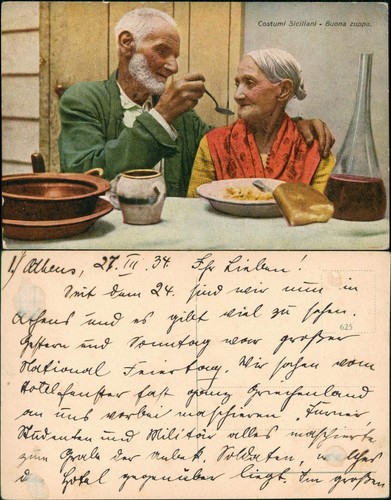 Costumi Siciliani - Buona zuppa.
1) Athens, 27. III. 34. Ihr Lieben!
Seit dem 24. sind wir nun in
Athens und es gibt viel zu sehen.
625
Gestern und Sonntag war großer
National Feiertag. Wir sahen vom
Hotelfenster fast ganz Griechenland
an uns vorbei maschieren. Turner
Studenten und Militär alles maschierte
zum Grabe des unbek. Soldaten, welches
d. Hotel gegenüber liegt. Im großen